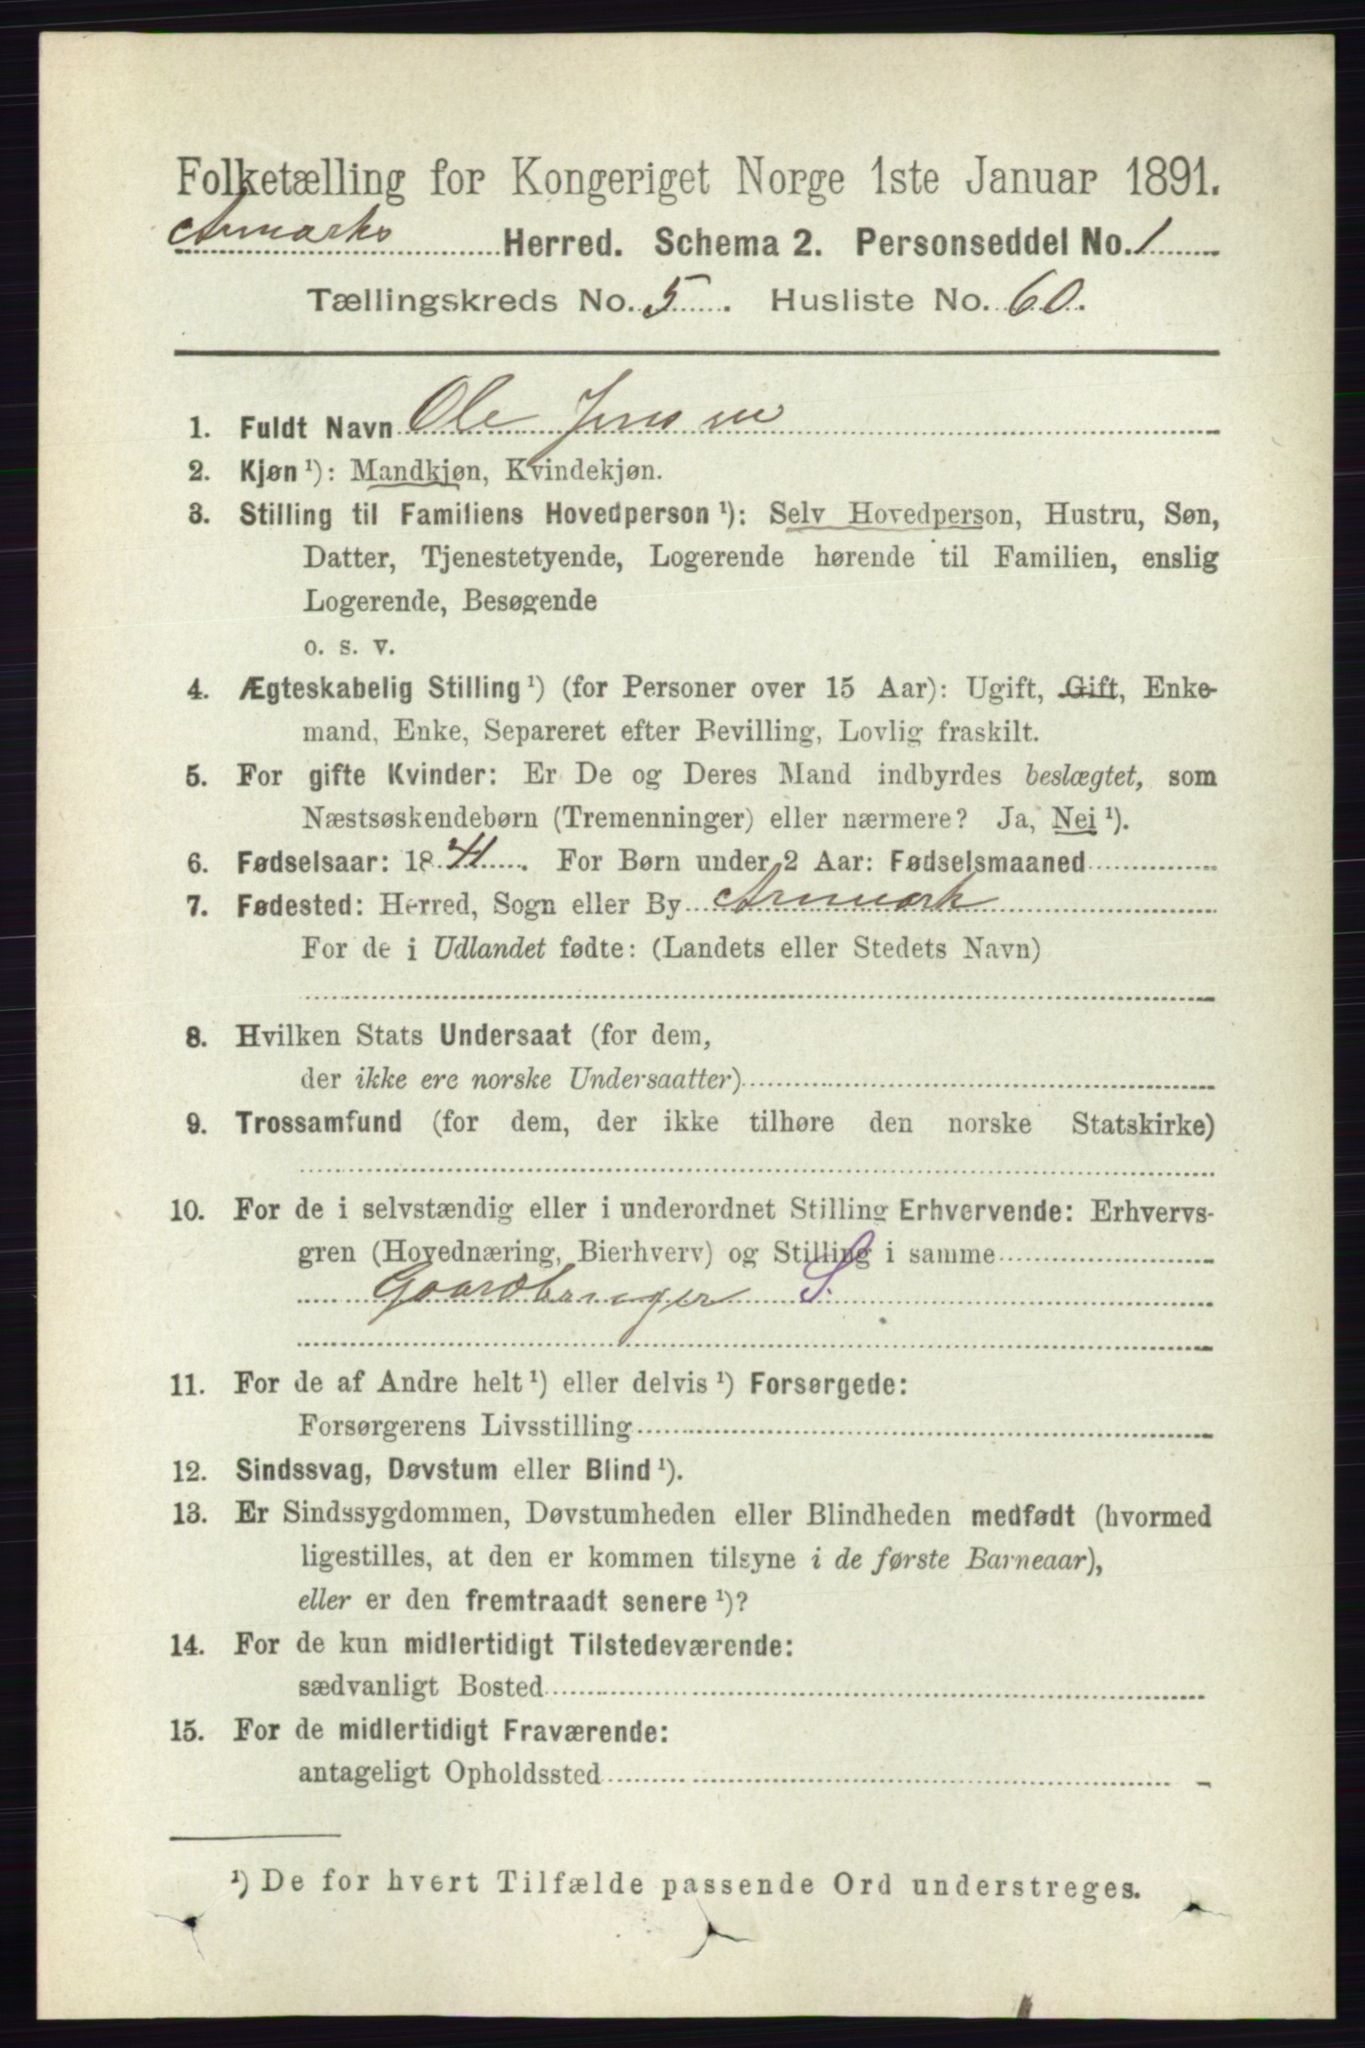 Folketælling for Kongeriget Norge 1ste Januar 1891.
Aremarks Herred. Schema 2. Personseddel No. 1
Tællingskreds No. 5. Husliste No. 60.
1. Fuldt Navn Ole Jensen
2. Kjøn ¹): Mandkjøn, Kvindekjøn.
3. Stilling til Familiens Hovedperson ¹): Selv Hovedperson, Hustru, Søn,
Datter, Tjenestetyende, Logerende hørende til Familien, enslig
Logerende, Besøgende
o. s. v.
4. Ægteskabelig Stilling ¹) (for Personer over 15 Aar): Ugift, Gift, Enke-
mand, Enke, Separeret efter Bevilling, Lovlig fraskilt.
5. For gifte Kvinder: Er De og Deres Mand indbyrdes beslægtet, som
Næstsøskendebørn (Tremenninger) eller nærmere? Ja, Nei ¹).
6. Fødselsaar: 1841. For Børn under 2 Aar: Fødselsmaaned
7. Fødested: Herred, Sogn eller By Aremark
For de i Udlandet fødte: (Landets eller Stedets Navn)
8. Hvilken Stats Undersaat (for dem,
der ikke ere norske Undersaatter)
9. Trossamfund (for dem, der ikke tilhøre den norske Statskirke)
10. For de i selvstændig eller i underordnet Stilling Erhvervende: Erhvervs-
gren (Hovednæring, Bierhverv) og Stilling i samme
Gaardbruger S.
11. For de af Andre helt ¹) eller delvis ¹) Forsørgede:
Forsørgerens Livsstilling
12. Sindssvag, Døvstum eller Blind ¹).
13. Er Sindssygdommen, Døvstumheden eller Blindheden medfødt (hvormed
ligestilles, at den er kommen tilsyne i de første Barneaar),
eller er den fremtraadt senere ¹)?
14. For de kun midlertidigt Tilstedeværende:
sædvanligt Bosted
15. For de midlertidigt Fraværende:
antageligt Opholdssted
¹) De for hvert Tilfælde passende Ord understreges.